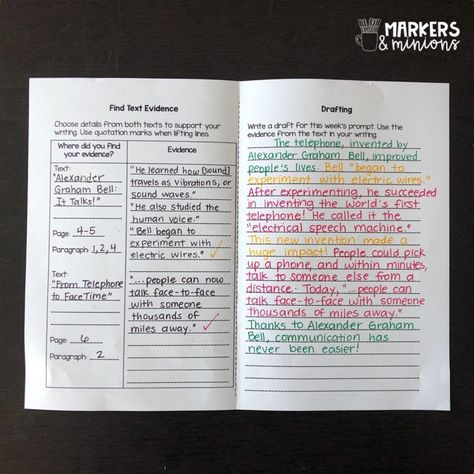 MARKERS
& minions
Find Text Evidence
Choose details from both texts to support your
writing. Use quotation marks when lifting lines.
Where did you find
your evidence?
Evidence
Text:
"Alexander
Graham Bell:
It Talks!"
Page: 4-5
Paragraph: 1, 2, 4
"He learned how [sound]
travels as vibrations, or
sound waves."
"He also studied the
human voice."
"Bell began to
experiment with
electric wires."
Text:
"From Telephone
to FaceTime"
Page: 6
Paragraph: 2
"...people can now
talk face-to-face
with someone
thousands of
miles away."
Drafting
Write a draft for this week's prompt. Use the
evidence from the text in your writing.
The telephone, invented by
Alexander Graham Bell, improved
people's lives. Bell "began to
experiment with electric wires."
After experimenting, he succeeded
in inventing the world's first
telephone! He called it the
"electrical speech machine."
This new invention made a
huge impact! People could pick
up a phone, and within minutes,
talk to someone else from a
distance. Today, "...people can
talk face-to-face with someone
thousands of miles away."
Thanks to Alexander Graham
Bell, communication has
never been easier!